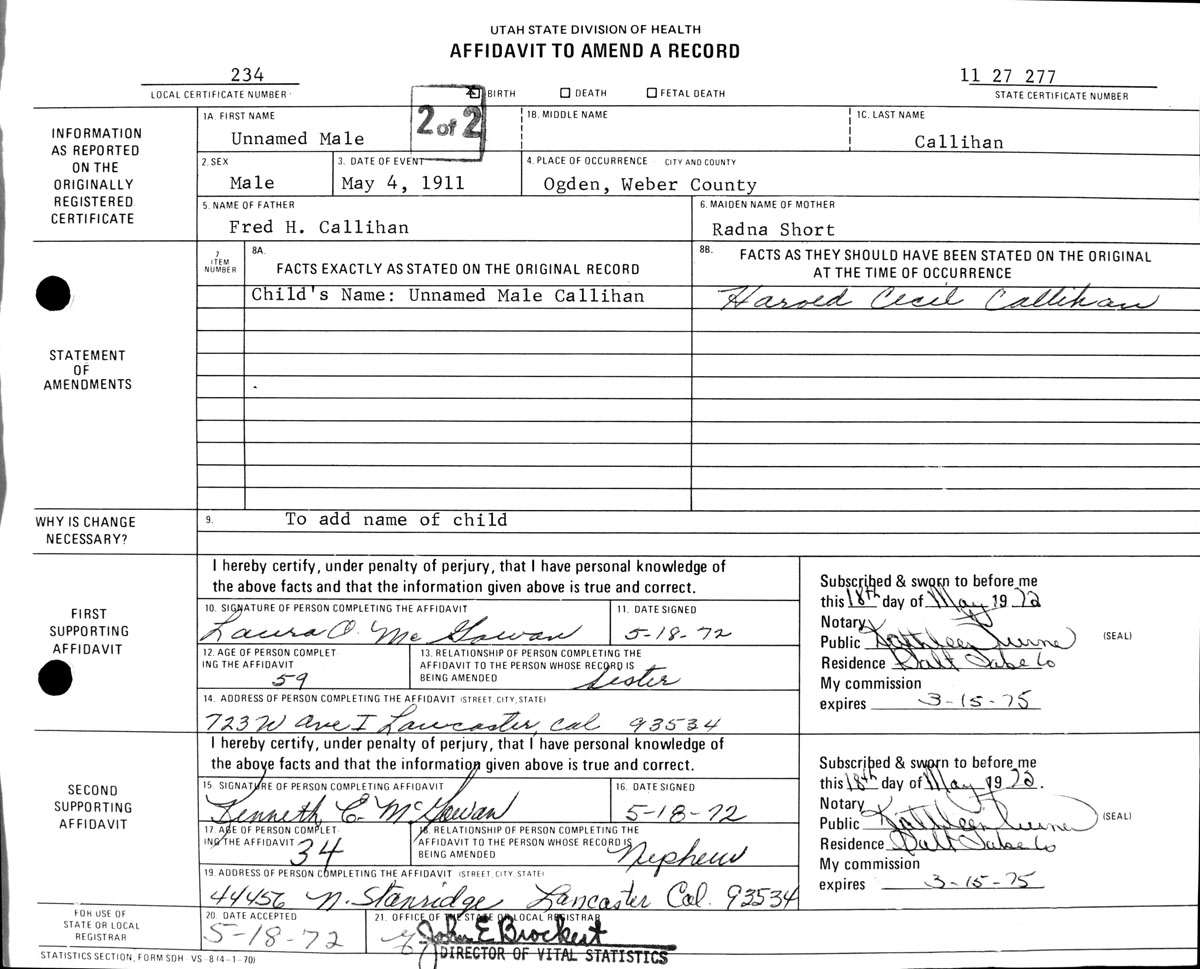 UTAH STATE DIVISION OF HEALTH
AFFIDAVIT TO AMEND A RECORD
234
LOCAL CERTIFICATE NUMBER
BIRTH DEATH FETAL DEATH
11 27 277
STATE CERTIFICATE NUMBER
2 of 2
INFORMATION
AS REPORTED
ON THE
ORIGINALLY
REGISTERED
CERTIFICATE
1A. FIRST NAME
Unnamed Male
1B. MIDDLE NAME
1C. LAST NAME
Callihan
2. SEX
Male
3. DATE OF EVENT
May 4, 1911
4. PLACE OF OCCURRENCE - CITY AND COUNTY
Ogden, Weber County
5. NAME OF FATHER
Fred H. Callihan
6. MAIDEN NAME OF MOTHER
Radna Short
STATEMENT
OF
AMENDMENTS
7
ITEM
NUMBER
8A.
FACTS EXACTLY AS STATED ON THE ORIGINAL RECORD
8B. FACTS AS THEY SHOULD HAVE BEEN STATED ON THE ORIGINAL
AT THE TIME OF OCCURRENCE
Child's Name: Unnamed Male Callihan
Harold Cecil Callihan
WHY IS CHANGE
NECESSARY?
9. To add name of child
FIRST
SUPPORTING
AFFIDAVIT
I hereby certify, under penalty of perjury, that I have personal knowledge of
the above facts and that the information given above is true and correct.
10. SIGNATURE OF PERSON COMPLETING THE AFFIDAVIT
Laura O. McGowan
11. DATE SIGNED
5-18-72
12. AGE OF PERSON COMPLET-
ING THE AFFIDAVIT
59
13. RELATIONSHIP OF PERSON COMPLETING THE
AFFIDAVIT TO THE PERSON WHOSE RECORD IS
BEING AMENDED
Sister
14. ADDRESS OF PERSON COMPLETING THE AFFIDAVIT (STREET, CITY, STATE)
723 W Ave I Lancaster, Cal 93534
Subscribed & sworn to before me
this 18th day of May 1972
Notary
Public Kathleen
Residence Salt Lake Co
(SEAL)
My commission
expires 3-15-75
SECOND
SUPPORTING
AFFIDAVIT
I hereby certify, under penalty of perjury, that I have personal knowledge of
the above facts and that the information given above is true and correct.
15. SIGNATURE OF PERSON COMPLETING AFFIDAVIT
Kenneth E. McGowan
16. DATE SIGNED
5-18-72
17. AGE OF PERSON COMPLET-
ING THE AFFIDAVIT
34
18. RELATIONSHIP OF PERSON COMPLETING THE
AFFIDAVIT TO THE PERSON WHOSE RECORD IS
BEING AMENDED
Nephew
19. ADDRESS OF PERSON COMPLETING THE AFFIDAVIT (STREET, CITY, STATE)
44456 N. Stanridge Lancaster Cal. 93534
Subscribed & sworn to before me
this 18th day of May 1972.
Notary
Public Kathleen
Residence Salt Lake Co
(SEAL)
My commission
expires 3-15-75
FOR USE OF
STATE OR LOCAL
REGISTRAR
20. DATE ACCEPTED
5-18-72
21. OFFICE OF THE STATE OR LOCAL REGISTRAR
John E Brockert
DIRECTOR OF VITAL STATISTICS
STATISTICS SECTION, FORM SDH - VS - 8 (4-1-70)